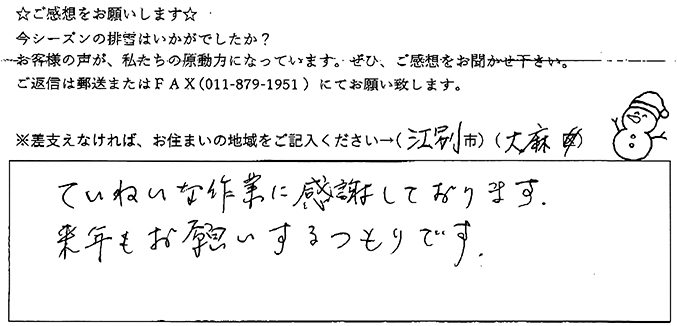 ☆ご感想をお願いします☆
今シーズンの排雪はいかがでしたか？
お客様の声が、私たちの原動力になっています。ぜひ、ご感想をお聞かせ下さい。
ご返信は郵送またはＦＡＸ(011-879-1951）にてお願い致します。
※差支えなければ、お住まいの地域をご記入ください→(江別市）（大麻町）
ていねいな作業に感謝しております.
来年もお願いするつもりです.